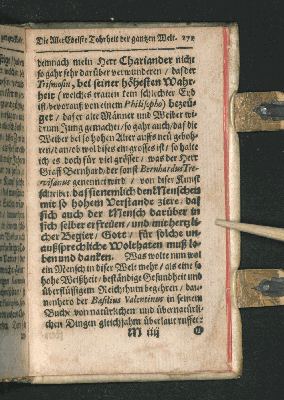 Die Aller Edelste Tohrheit der gantzen Welt. 271
demnach mein Herr Chariander nicht
so gahr sehr darüber verwundern / daß der
Trismosin, bei seiner höhesten Wahr-
heit (welches trauen kein schlechter Eyd
ist / bevorauß von einem Philosopho) bezeu-
get / daß er alte Männer und Weiber wi-
drum Jung gemachet / so gahr auch / daß die
Weiber bei so hohen Alter auffs neü gebohr-
ren / an / ob wol dises ein grosses ist / so halte
ich es doch für viel grösser / was der Herr
Graff Bernhard, der sonst Bernhardus Tre-
visanus genennet wird / von diser Kunst
schreibet. daß sie nemlich den Menschen
mit so hohem Verstande ziere, daß
sich auch der Mensch darüber in
sich selber erfreuen / und mit hertzli-
cher Begier / Gott / für solche un-
außsprechliche Wolthaten muß lo-
ben und danken. Was wolte nun wol
ein Mensch in diser Welt mehr / als eine so
hohe Weißheit / beständige Gesundheit und
überflüssigem Reichthum begehren / dan-
nenhero der Basilius Valentinus in seinem
Buche von natürlichen und übernatürli-
chen Dingen gleichsahm überlaut ruffet:
M iiij